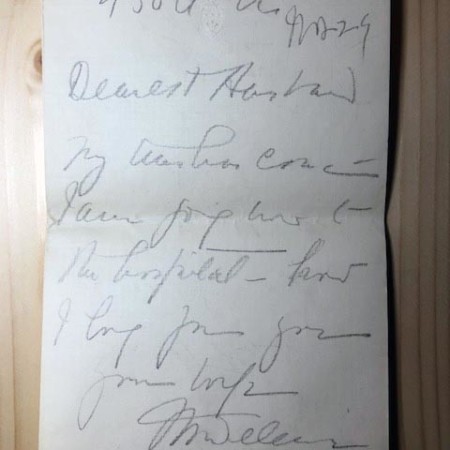 Nov 29
Dearest Husband
My time has come –
I am going now to
the hospital – know
I long for you
your wife